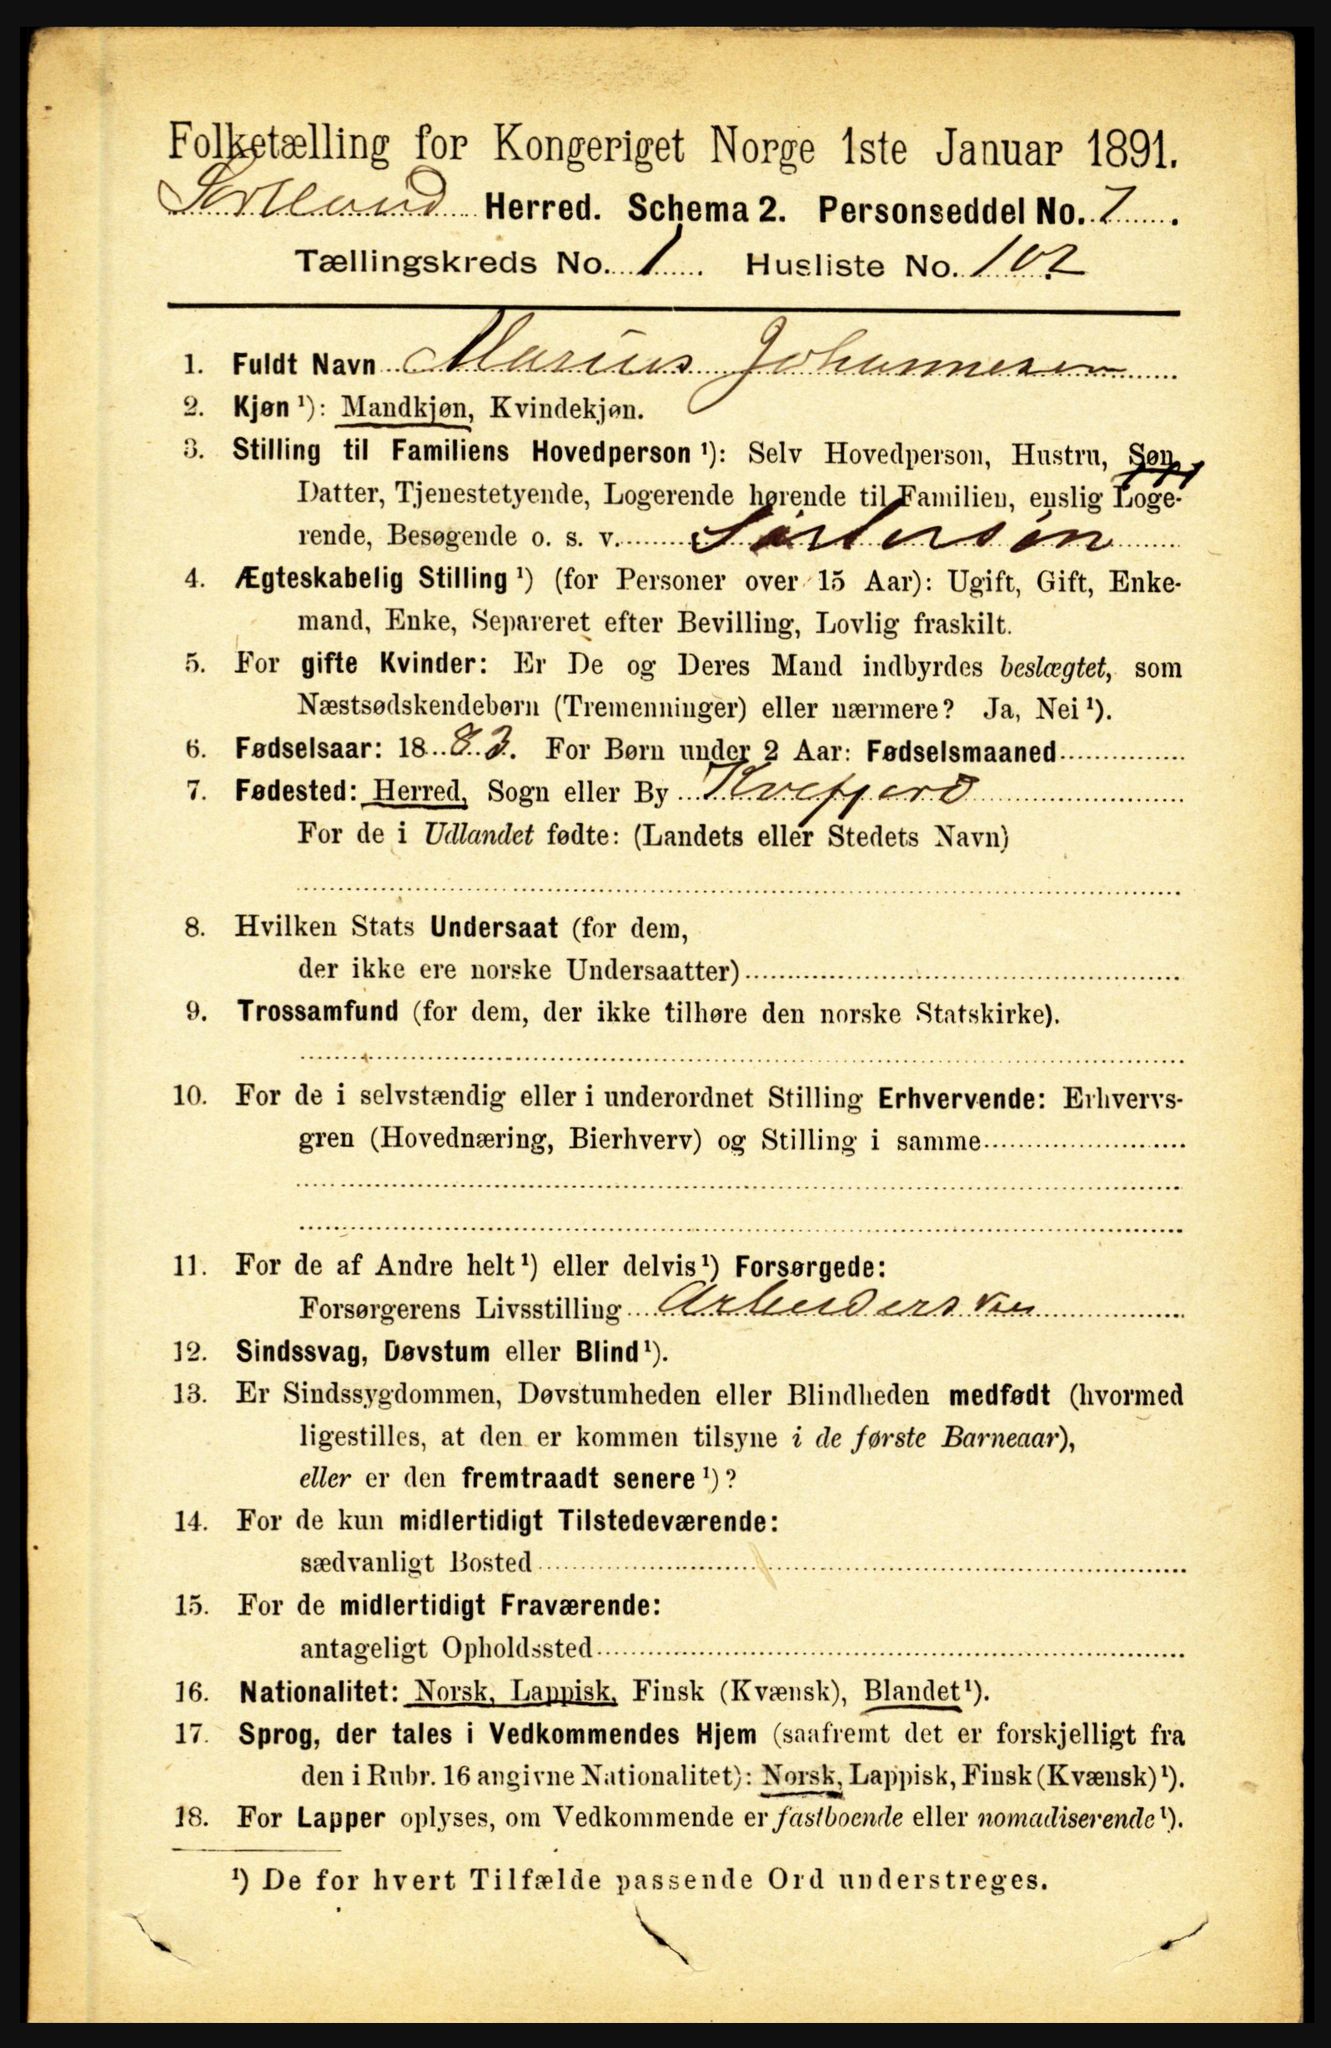 Folketælling for Kongeriget Norge 1ste Januar 1891.
Sortland Herred. Schema 2. Personseddel No. 7.
Tællingskreds No. 1. Husliste No. 102
1. Fuldt Navn Marius Johannesen
2. Kjøn ¹): Mandkjøn, Kvindekjøn.
3. Stilling til Familiens Hovedperson ¹): Selv Hovedperson, Hustru, Søn,
Datter, Tjenestetyende, Logerende hørende til Familien, enslig Loge-
rende, Besøgende o. s. v. Søstersøn
4. Ægteskabelig Stilling ¹) (for Personer over 15 Aar): Ugift, Gift, Enke-
mand, Enke, Separeret efter Bevilling, Lovlig fraskilt.
5. For gifte Kvinder: Er De og Deres Mand indbyrdes beslægtet, som
Næstsødskendebørn (Tremenninger) eller nærmere? Ja, Nei ¹).
6. Fødselsaar: 1883. For Børn under 2 Aar: Fødselsmaaned
7. Fødested: Herred, Sogn eller By Kvefjord
For de i Udlandet fødte: (Landets eller Stedets Navn)
8. Hvilken Stats Undersaat (for dem,
der ikke ere norske Undersaatter)
9. Trossamfund (for dem, der ikke tilhøre den norske Statskirke).
10. For de i selvstændig eller i underordnet Stilling Erhvervende: Erhvervs-
gren (Hovednæring, Bierhverv) og Stilling i samme
11. For de af Andre helt ¹) eller delvis ¹) Forsørgede:
Forsørgerens Livsstilling
12. Sindssvag, Døvstum eller Blind ¹).
13. Er Sindssygdommen, Døvstumheden eller Blindheden medfødt (hvormed
ligestilles, at den er kommen tilsyne i de første Barneaar),
eller er den fremtraadt senere ¹)?
14. For de kun midlertidigt Tilstedeværende:
sædvanligt Bosted
15. For de midlertidigt Fraværende:
antageligt Opholdssted
16. Nationalitet: Norsk, Lappisk, Finsk (Kvænsk), Blandet ¹).
17. Sprog, der tales i Vedkommendes Hjem (saafremt det er forskjelligt fra
den i Rubr. 16 angivne Nationalitet): Norsk, Lappisk, Finsk (Kvænsk) ¹).
18. For Lapper oplyses, om Vedkommende er fastboende eller nomadiserende ¹).
¹) De for hvert Tilfælde passende Ord understreges.